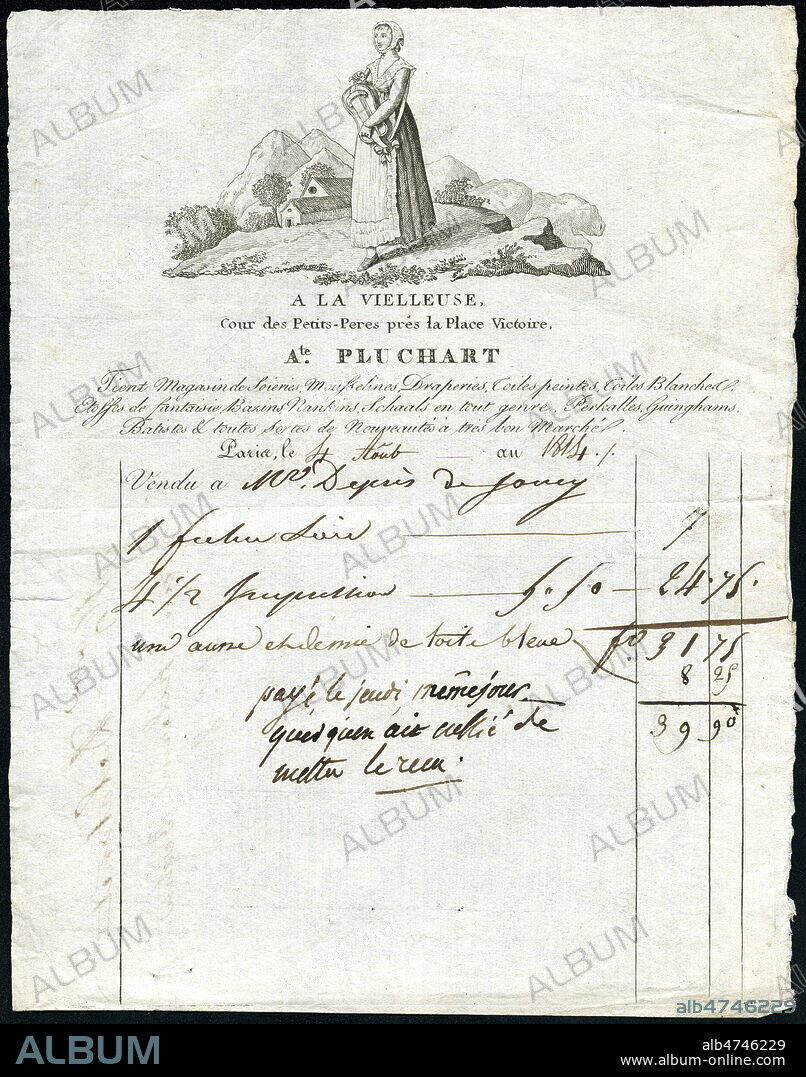 A LA VIELLEUSE,
Cour des Petits-Peres près la Place Victoire,
Ate. PLUCHART
Tient Magasin de Soieries, Mousselines, Draperies, Toiles peintes, Toiles Blanches.
Etoffes de fantaisie, Bazins Nankins, Schaals en tout genre. Perkalles, Guinghams.
Batistes & toutes Sortes de Nouveautés à très bon Marché.
Paris, le 4 Août au 1814.
Vendu a Mr. de Jouey
1 fichu Soie 7
4 1/2 5.50 24.75.
une aune et démie de toile bleue fs 31 75
8 25
payé le jeudi même jour 39 90
quoiqu'en ait oublié de
mettre le recu.
ALBUM
alb4746229
ALBUM
alb4746229
www.album-online.com